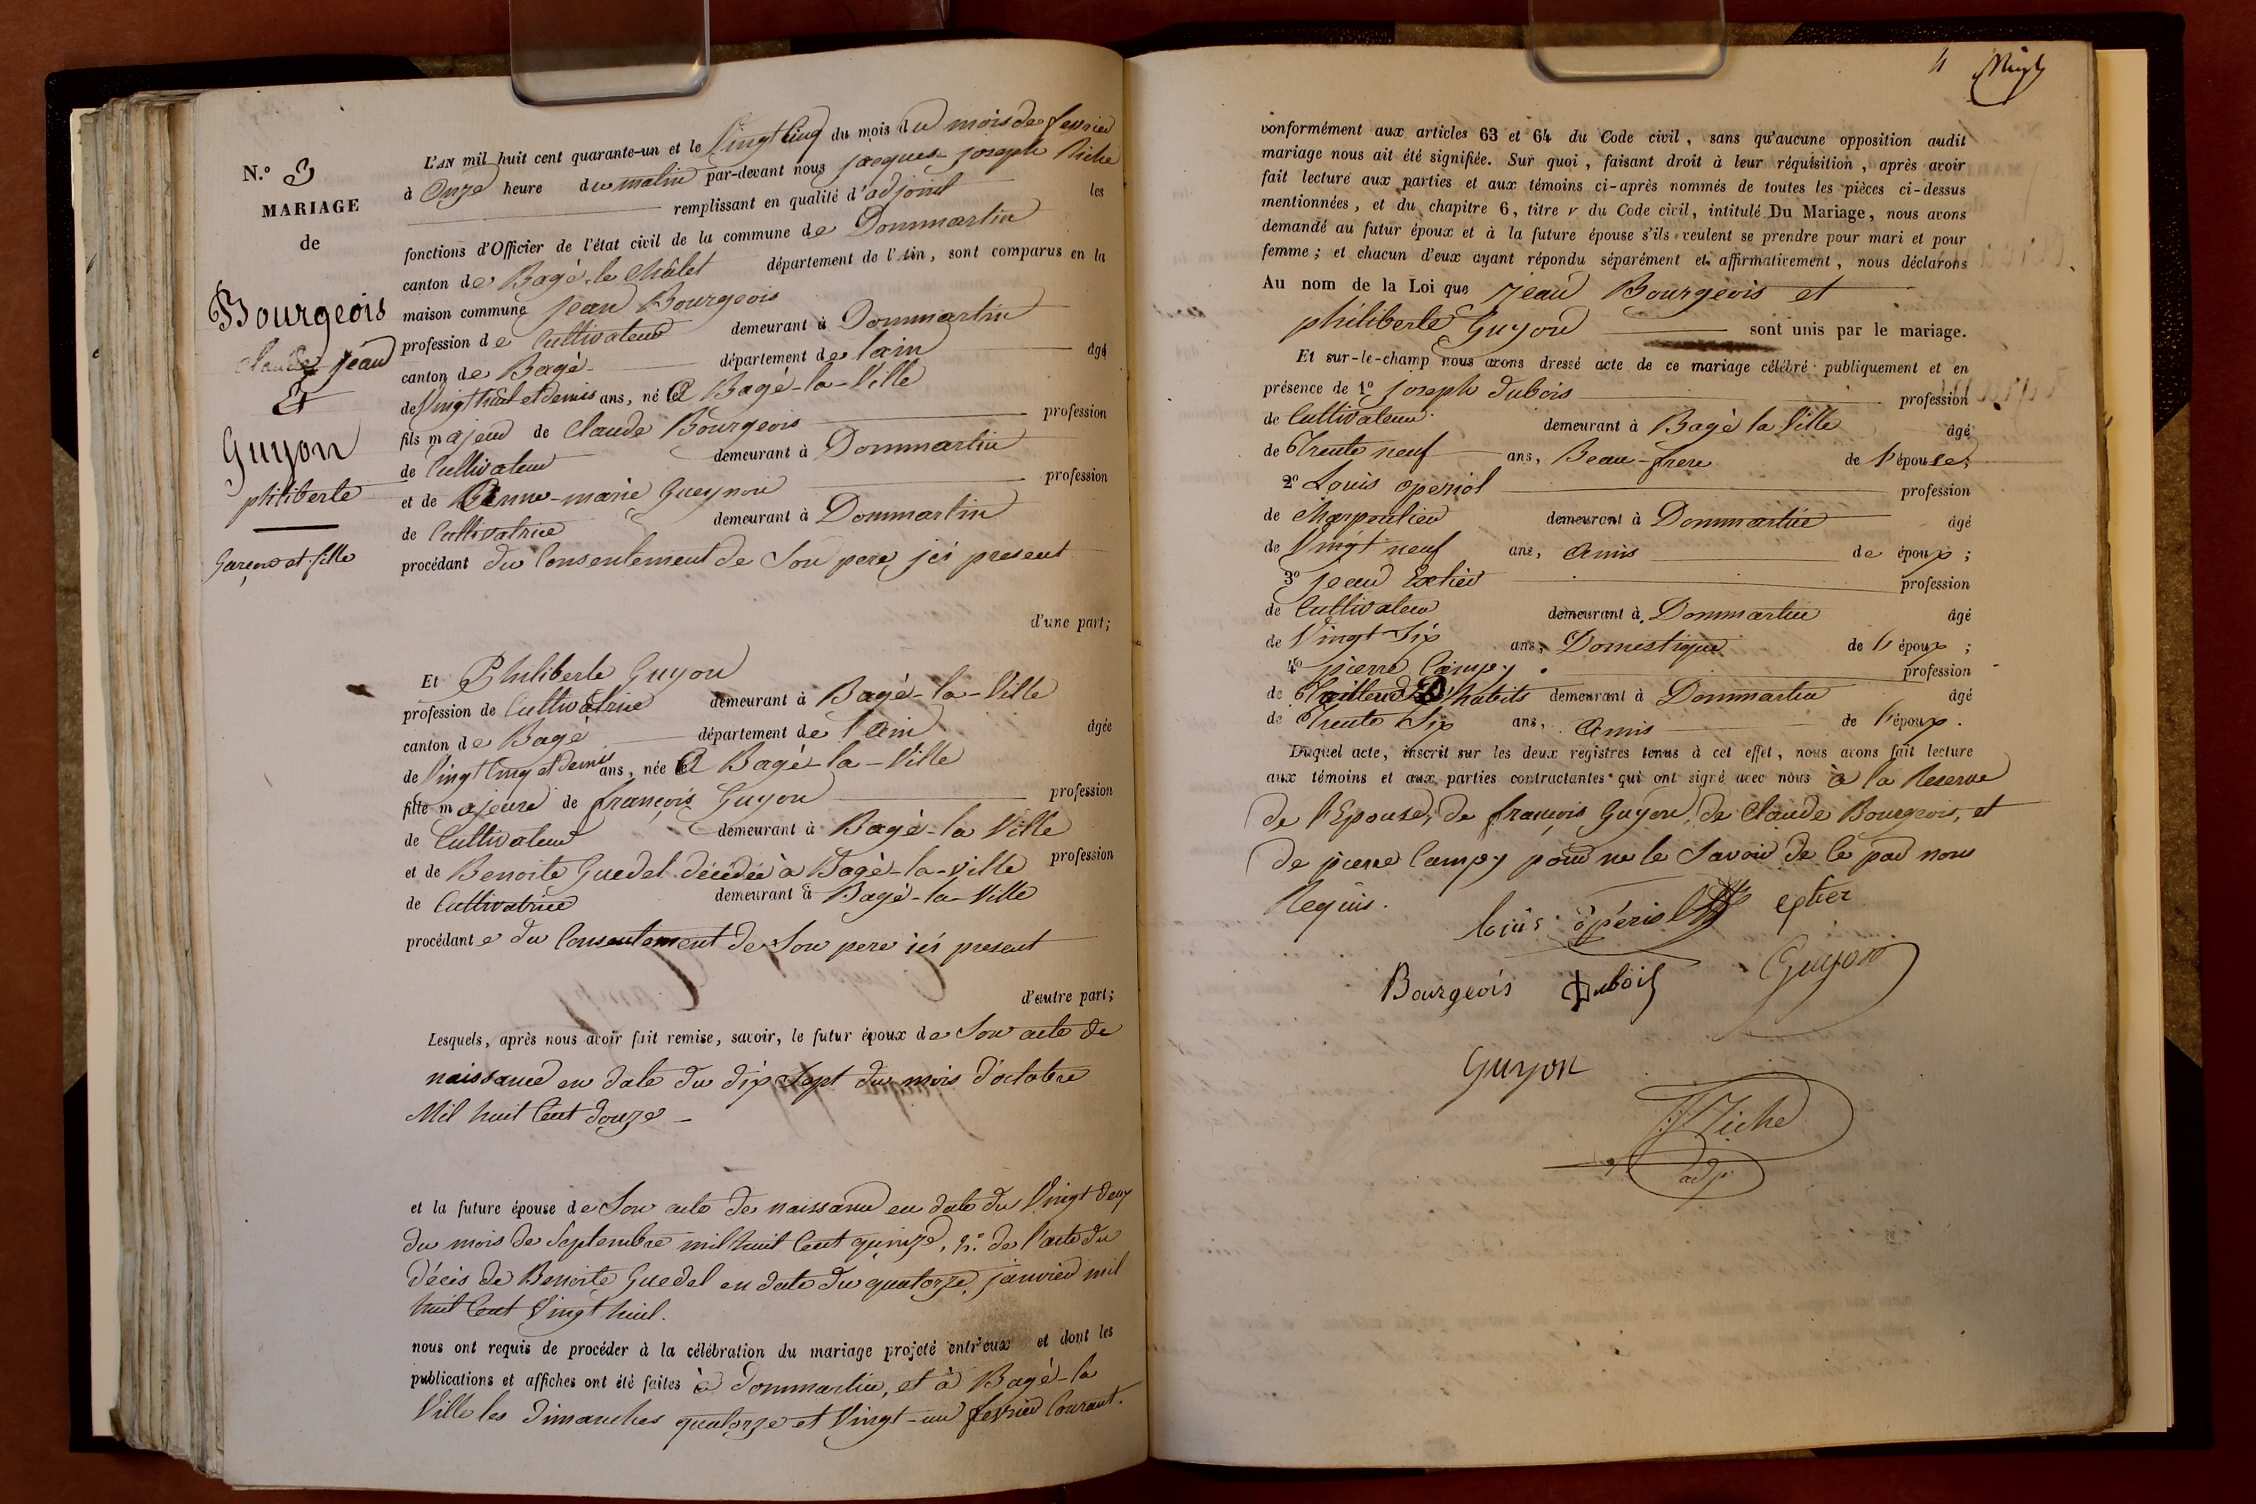 N.° 3
MARIAGE
de
Bourgeois
Claude Jean
Et
Guyon
philiberte
Garçon et fille
L'AN mil huit cent quarante-un et le Vingt Cinq du mois du mois de fevrier
à Onze heure du matin par-devant nous jacques-joseph Riche
remplissant en qualité d'adjoint les
fonctions d'Officier de l'état civil de la commune de Dommartin
canton de Bagé-le-Châtel département de l'Ain, sont comparus en la
maison commune jean Bourgeois
profession de Cultivateur demeurant à Dommartin
canton de Bagé département de lain âgé
de Vingt huit et demis ans, né à Bagé-la-Ville
fils majeur de Claude Bourgeois profession
de Cultivateur demeurant à Dommartin
et de Anne-marie Gueynon profession
de Cultivatrice demeurant à Dommartin
procédant du Consentement de Son pere ici present
d'une part;
Et Philiberte Guyon
profession de Cultivatrice demeurant à Bagé-la-Ville
canton de Bagé département de l'ain âgée
de Vingt Cinq et demis ans, née à Bagé-la-Ville
fille majeure de françois Guyon profession
de Cultivateur demeurant à Bagé-la Ville
et de Benoite Guedel décédée à Bagé-la-Ville profession
de Cultivatrice demeurant à Bagé-la-Ville
procédante du Consentement de Son pere ici present
d'autre part;
Lesquels, après nous avoir fait remise, savoir, le futur époux de Son acte de
naissance en date du dix Sept du mois d'octobre
Mil huit Cent douze
et la future épouse de Son acte de naissance en date du Vingt deux
du mois de Septembre mil huit Cent quinze, 2.° de l'acte du
décès de Benoite Guedel en date du quatorze janvier mil
huit Cent Vingt huit.
nous ont requis de procéder à la célébration du mariage projeté entr'eux et dont les
publications et affiches ont été faites à Dommartin, et à Bagé-la
Ville les dimanches quatorze et Vingt-un fevrier Courant.
4
conformément aux articles 63 et 64 du Code civil, sans qu'aucune opposition audit
mariage nous ait été signifiée. Sur quoi, faisant droit à leur réquisition, après avoir
fait lecture aux parties et aux témoins ci-après nommés de toutes les pièces ci-dessus
mentionnées, et du chapitre 6, titre v du Code civil, intitulé Du Mariage, nous avons
demandé au futur époux et à la future épouse s'ils veulent se prendre pour mari et pour
femme; et chacun d'eux ayant répondu séparément et affirmativement, nous déclarons
Au nom de la Loi que jean Bourgeois et
philiberte Guyon sont unis par le mariage.
Et sur-le-champ nous avons dressé acte de ce mariage célébré publiquement et en
présence de 1° joseph dubois profession
de Cultivateur demeurant à Bagé la Ville âgé
de Trente neuf ans, Beau-frere de l'épouse;
2° Louis operiol profession
de Charpentier demeurant à Dommartin âgé
de Vingt neuf ans, amis de époux;
3° jean Extier profession
de Cultivateur demeurant à Dommartin âgé
de Vingt Six ans, Domestique de l'époux;
4° pierre Campy profession
de Tailleur D'habits demeurant à Dommartin âgé
de Trente Six ans, amis de l'époux.
Duquel acte, inscrit sur les deux registres tenus à cet effet, nous avons fait lecture
aux témoins et aux parties contractantes qui ont signé avec nous à la Reserve
de l'Epouse, de françois Guyon, de Claude Bourgeois, et
de pierre Campy pour ne le Savoir de Ce par nous
Requis.
louis opériol extier
Bourgeois Dubois Guyon
Guyon
JJ Riche
adj.